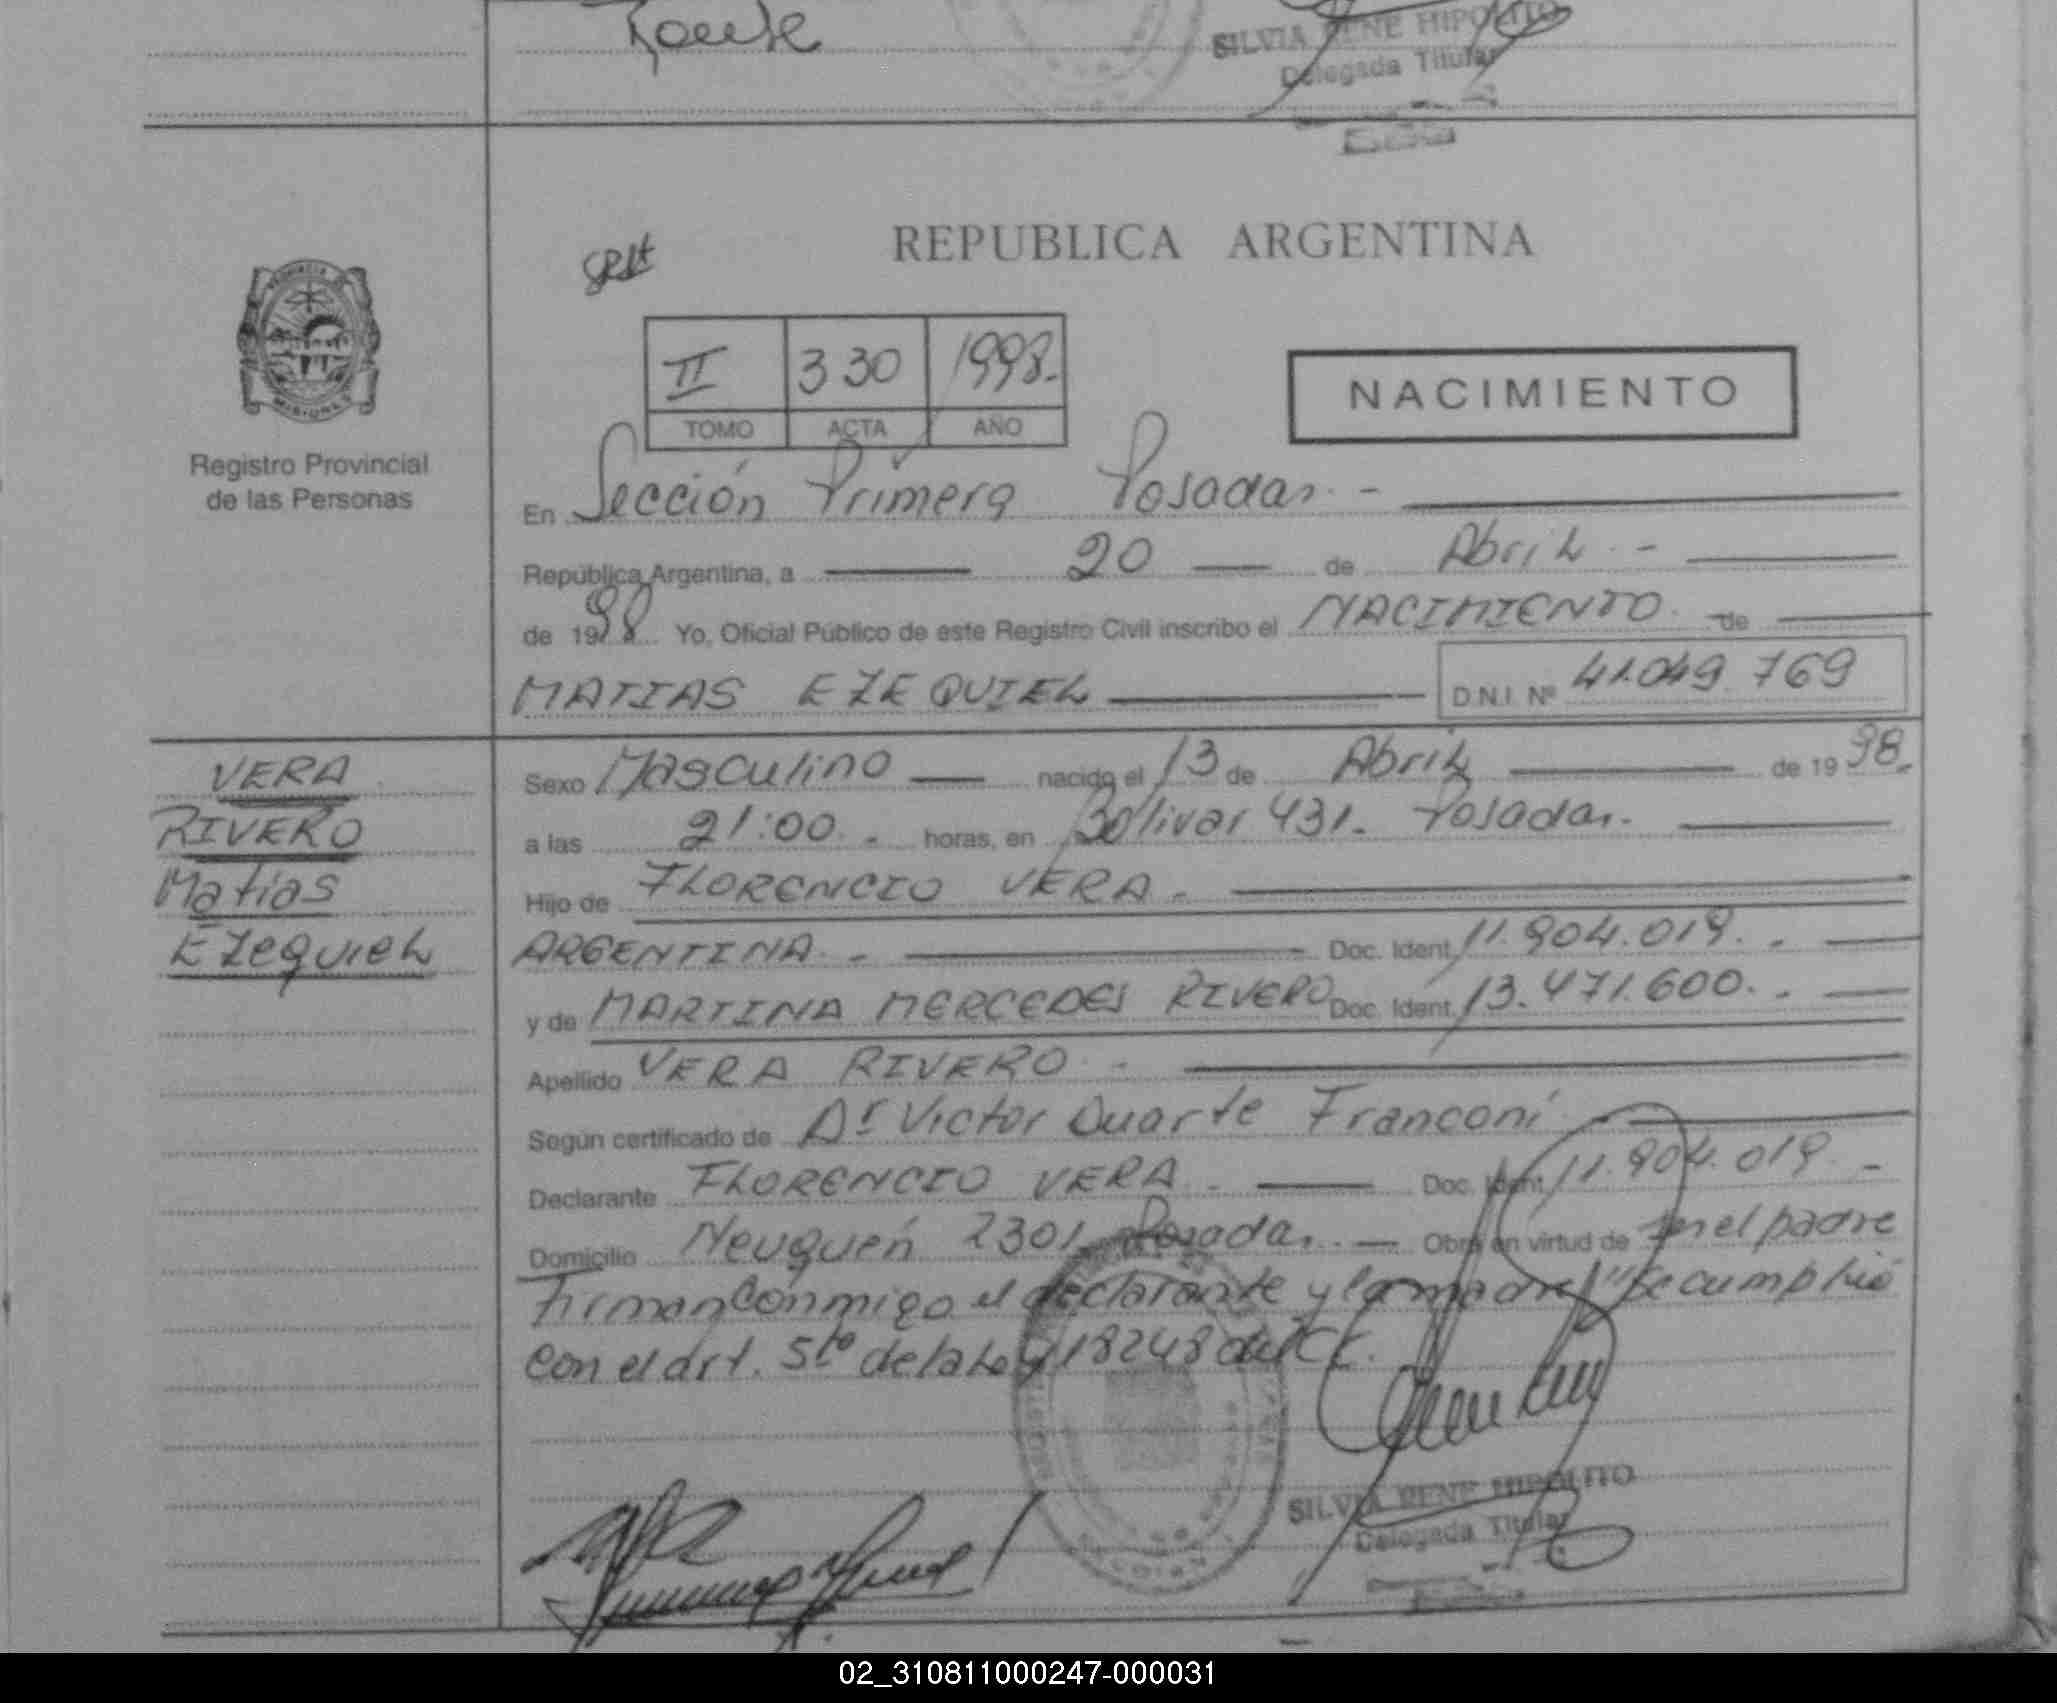 SILVIA RENE HIPOLITO
Delegada Titular
PROVINCIA DE
MISIONES
Registro Provincial
de las Personas
REPUBLICA ARGENTINA
II 330 1998.
TOMO ACTA AÑO
NACIMIENTO
En Sección Primera Posadas. -
República Argentina, a 20 de Abril. -
de 1998 Yo, Oficial Público de este Registro Civil inscribo el NACIMIENTO de
MATIAS EZEQUIEL D.N.I. Nº 41.049.769
VERA
RIVERO
Matias
Ezequiel
Sexo Masculino nacido el 13 de Abril de 1998.
a las 21:00. - horas, en Bolivar 431. Posadas.
Hijo de FLORENCIO VERA -
ARGENTINA. - Doc. Ident. 11.904.019. -
y de MARTINA MERCEDES RIVERO Doc. Ident. 13.471.600. -
Apellido VERA RIVERO -
Según certificado de Dr Victor Duarte Franconi
Declarante FLORENCIO VERA. - Doc. Ident. 11.904.019. -
Domicilio Neuquén 2301 Posadas. - Obra en virtud de ser el padre
Firman conmigo el declarante y la madre "Se cumplió
con el art. 5to de la Ley 18248 del CC.
SILVIA RENE HIPOLITO
Delegada Titular
02_310811000247-000031